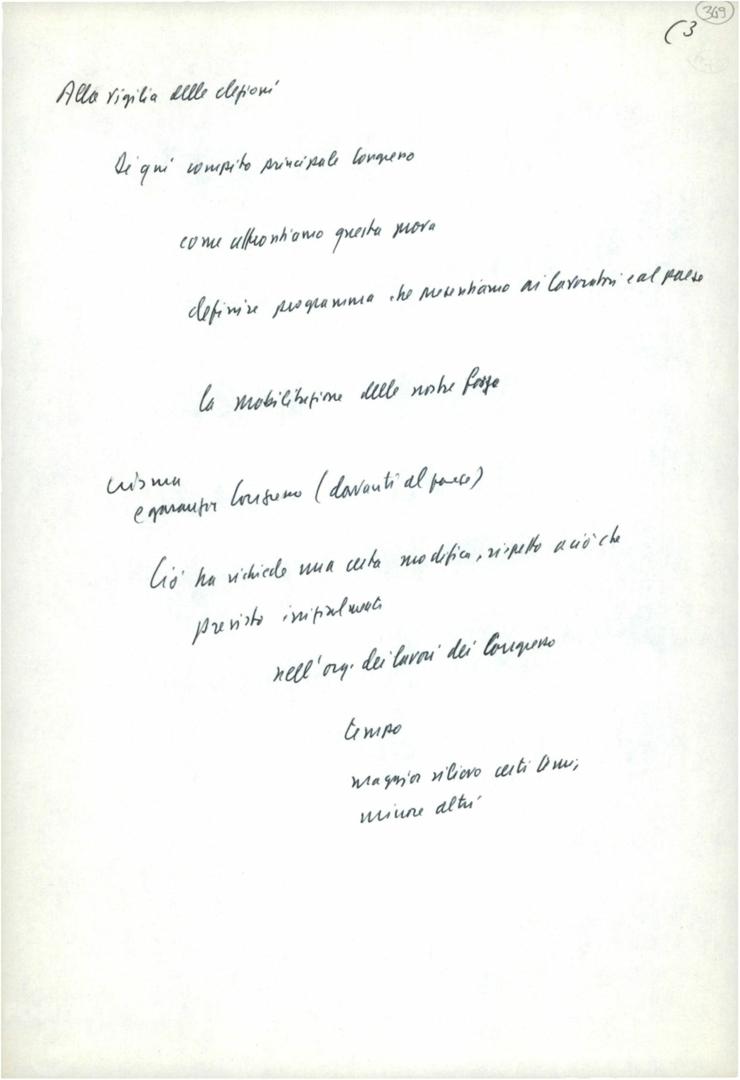 369
(3
Alla vigilia delle elezioni
Di qui compito principale Congresso
come affrontiamo questa prova
definire programma che presentiamo ai lavoratori e al paese
la mobilitazione delle nostre forze
e garanzia Congresso (davanti al paese)
Ciò ha richiesto una certa modifica, rispetto a ciò che
previsto inizialmente
nell'org. dei lavori del Congresso
tempo
maggior rilievo certi temi,
minore altri